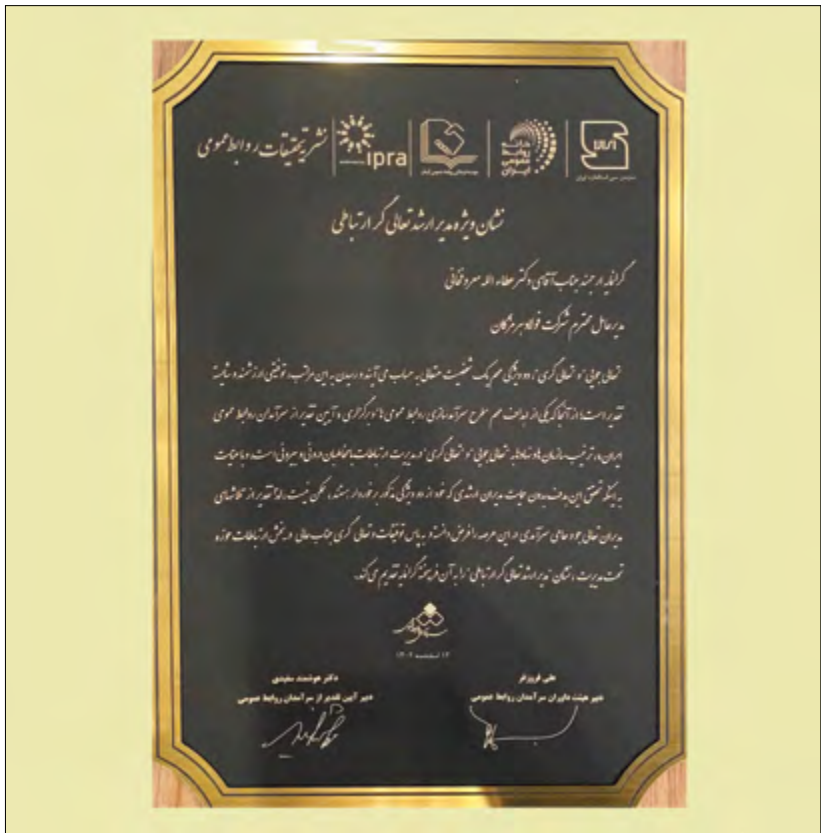 خانه روابط عمومی ایران
ipra
نشر تحقیقات روابط عمومی
نشان ویژه مدیر ارشد تعالی گر ارتباطی
گرانمایه ارجمند جناب آقای دکتر عطاء اله معروفخانی
مدیرعامل محترم شرکت فولاد هرمزگان
تعالی جویی و تعالی گری، دو ویژگی مهم یک شخصیت متعالی به حساب می آیند و رسیدن به این مراتب، توفیقی ارزشمند و شایسته
تقدیر است؛ از آنجا که یکی از اهداف مهم طرح سرآمدسازی روابط عمومی ها و برگزاری و آیین تقدیر از سرآمدان روابط عمومی
ایران، ترغیب سازمان ها و نهادها به تعالی جویی و تعالی گری در مدیریت ارتباطات با مخاطبان درونی و بیرونی است، و با عنایت
به اینکه تحقق این هدف بدون حمایت مدیران ارشدی که خود از دو ویژگی مذکور برخوردار هستند، ممکن نیست، لذا تقدیر از تلاشهای
مدیران تعالی جو و حامی سرآمدی در این عرصه را فرض دانسته و به پاس توفیقات و تعالی گری جناب عالی در بخش ارتباطات حوزه
تحت مدیریت، نشان مدیر ارشد تعالی گر ارتباطی را به آن فرهیخته گرانمایه تقدیم می کند.
علی فروزفر
دبیر هیئت داوران سرآمدان روابط عمومی
دکتر هوشمند سفیدی
دبیر آیین تقدیر از سرآمدان روابط عمومی